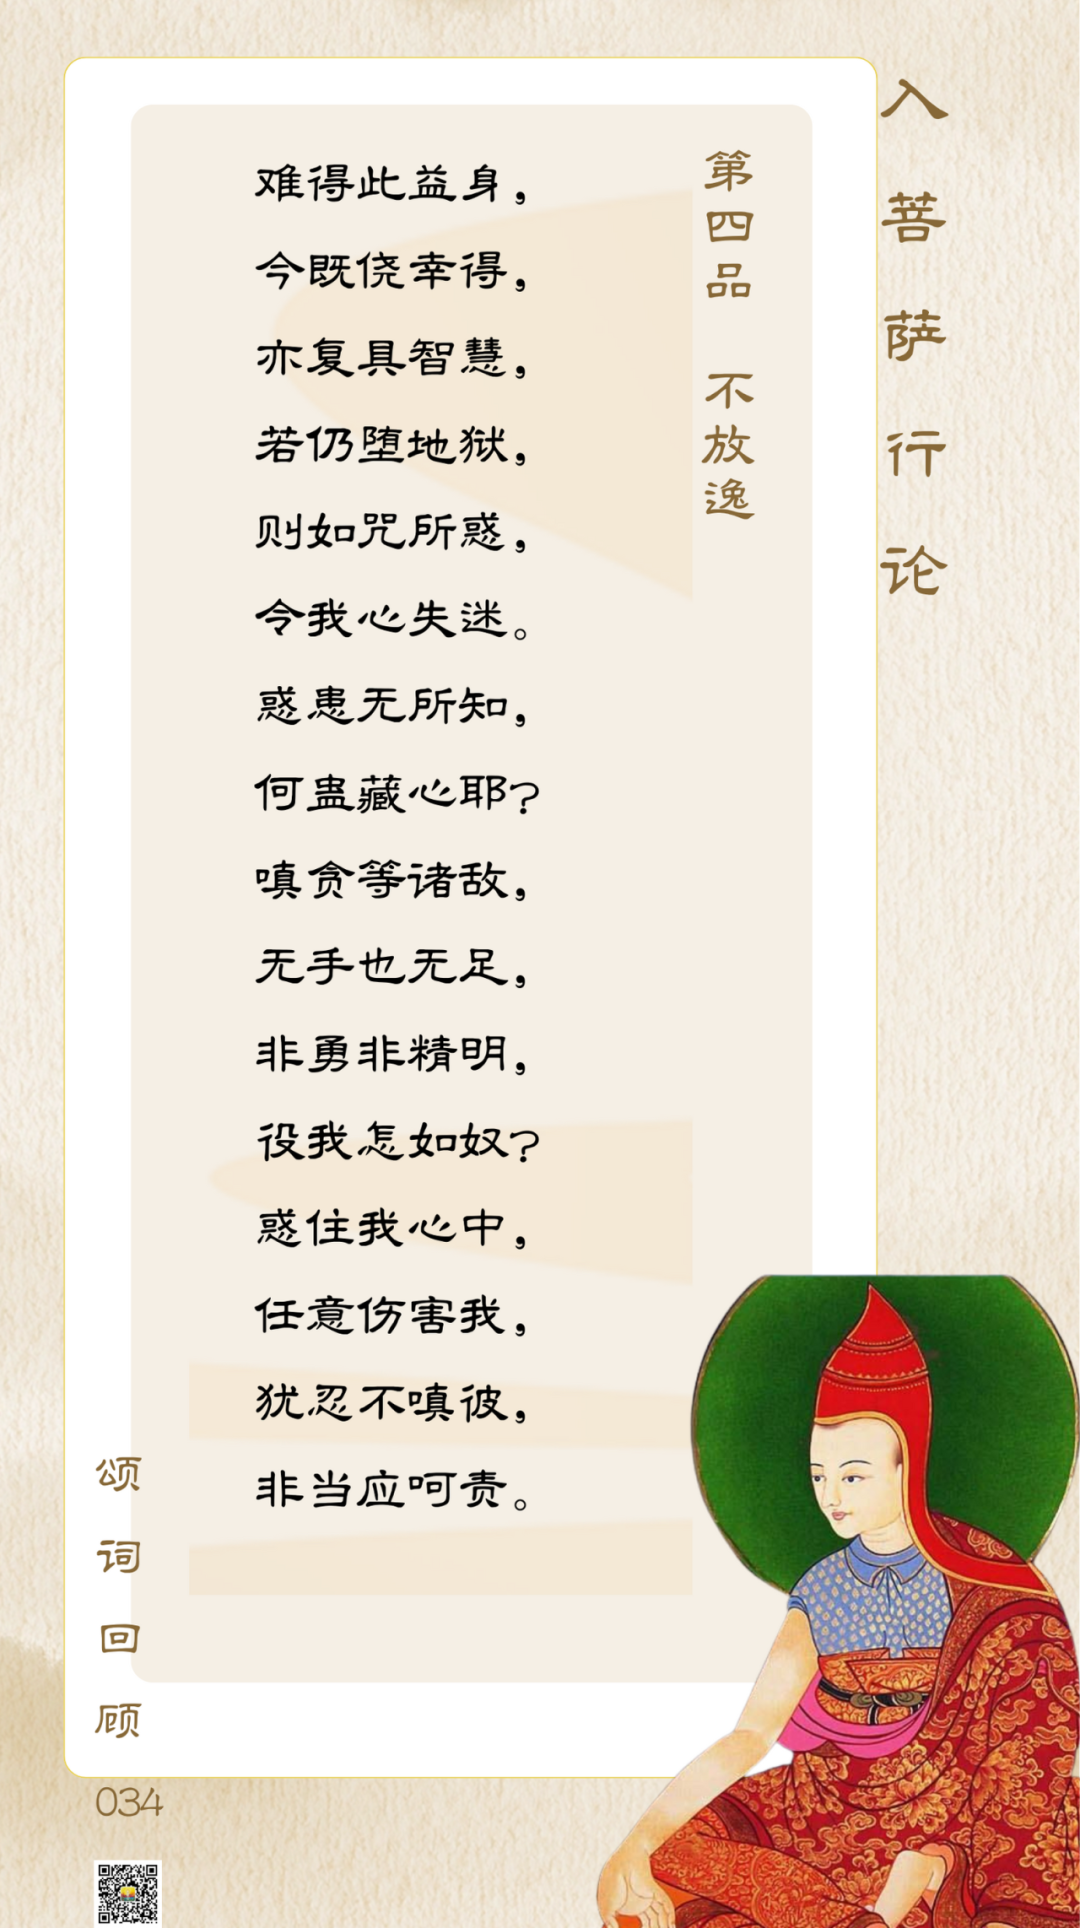 入菩萨行论
第四品 不放逸
难得此益身，
今既侥幸得，
亦复具智慧，
若仍堕地狱，
则如咒所惑，
令我心失迷。
惑患无所知，
何蛊藏心耶？
嗔贪等诸敌，
无手也无足，
非勇非精明，
役我怎如奴？
惑住我心中，
任意伤害我，
犹忍不嗔彼，
非当应呵责。
颂词回顾
034